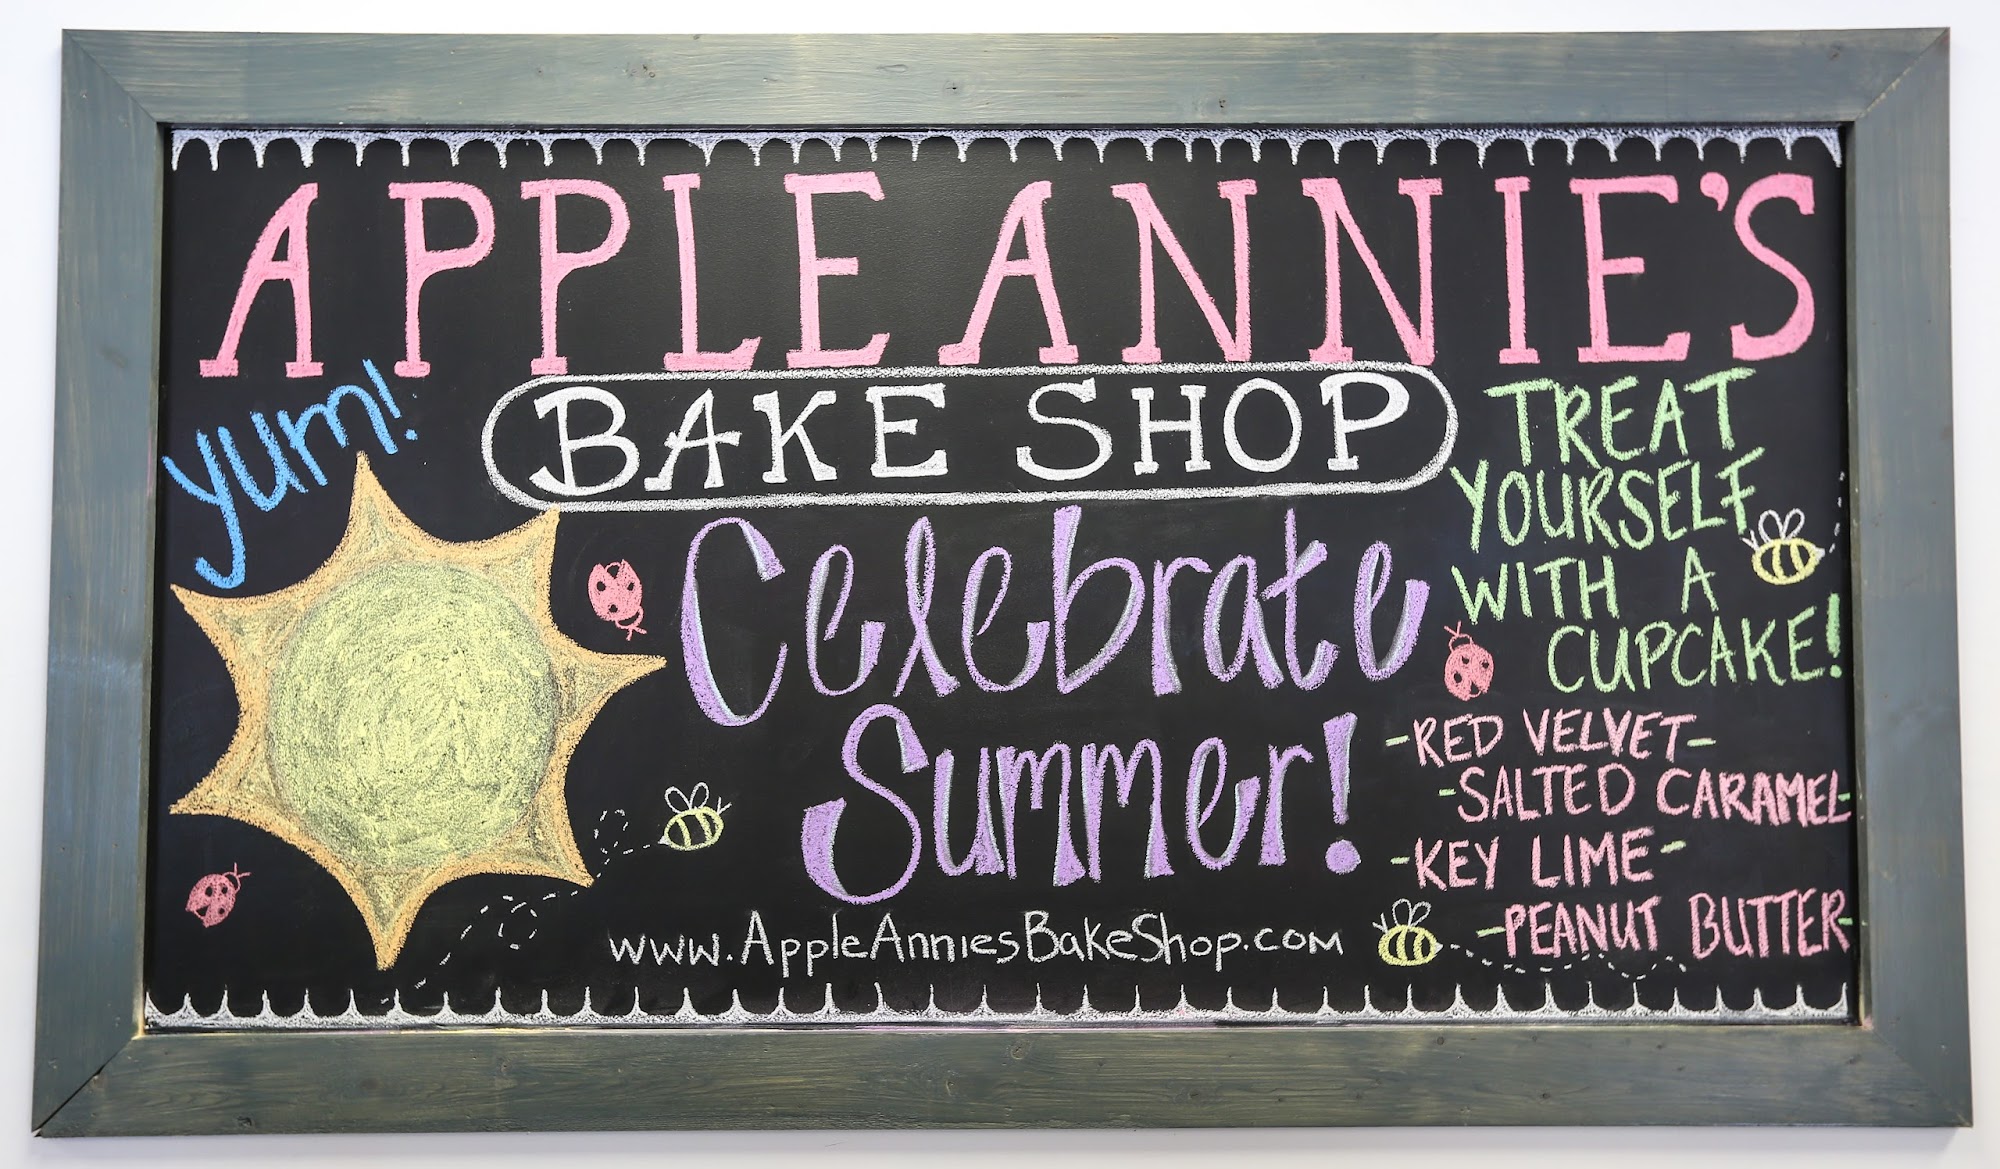 APPLE ANNIE'S
BAKE SHOP
yum!
Celebrate
Summer!
TREAT
YOURSELF
WITH A
CUPCAKE!
-RED VELVET-
-SALTED CARAMEL-
-KEY LIME-
-PEANUT BUTTER-
www.AppleAnniesBakeShop.com